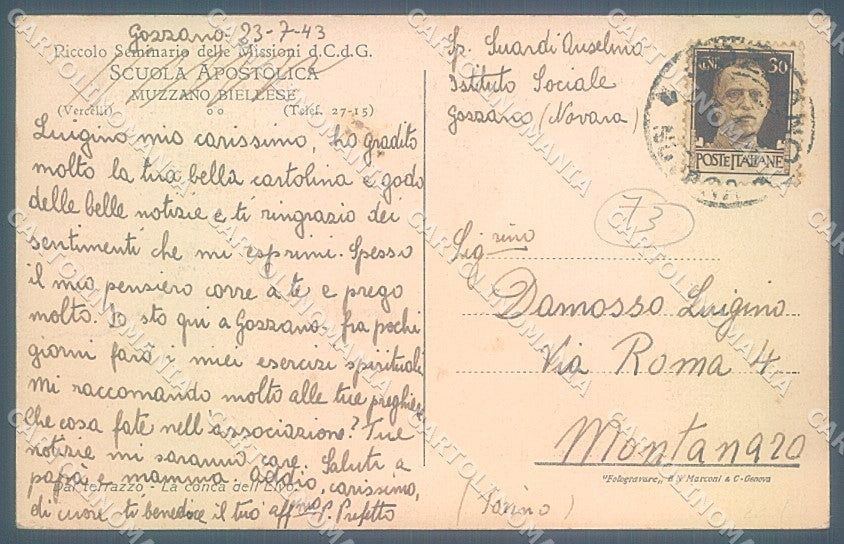 Gozzano 23-7-43
Piccolo Seminario delle Missioni d.C.d.G.
SCUOLA APOSTOLICA
MUZZANO BIELLESE
(Vercelli) (Telef. 27-15)
Luigino mio carissimo, ho gradito
molto la tua bella cartolina e godo
delle belle notizie e ti ringrazio dei
sentimenti che mi esprimi. Spesso
il mio pensiero corre a te e prego
molto. Io sto qui a Gozzano. fra pochi
giorni farò i miei esercizi spirituali
mi raccomando molto alle tue preghiere
Che cosa fate nell'associazione? Tue
notizie mi saranno care. Saluti a
papà e mamma. Addio, carissimo,
Dal terrazzo - La conca dell'Elvo
di cuore ti benedice il tuo aff.mo P. Prefetto
Sr. Suardi Anselmo
Istituto Sociale
Gozzano (Novara)
30
POSTE ITALIANE
73
Sig.rino
Damosso Luigino
Via Roma 4
Montanaro
"Fotogravure" B.N Marconi & C-Genova
(Torino)
CARTOLINOMANIA